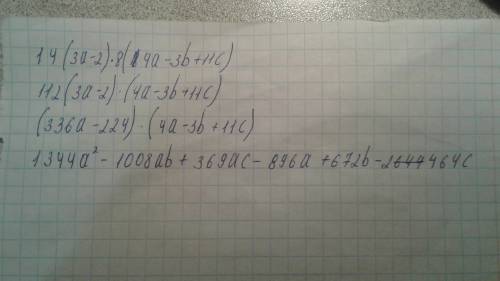 14(3a-2)·8(4a-3b+11c)
112(3a-2)·(4a-3b+11c)
(336a-224)·(4a-3b+11c)
1344a²-1008ab+369ac-896a+672b-2464c